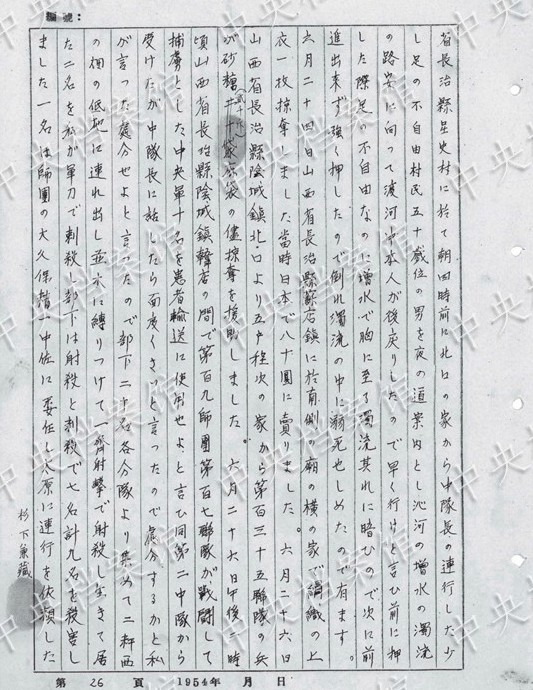 編號:
省長治縣呈史村に於て朝四時前に北口の家から中隊長の連行した少
し足の不自由村民五十歳位の男を夜の道案内とし沁河の増水の濁流
の路安に向って渡河中本人が後戻りしたので早く行けと言ひ前に押
した際足の不自由なのに増水で胸に至る濁流其れに暗ひので次に前
進出来ず強押したので倒れ濁流の中に溺死せしめたので有ます。
六月二十四日山西省長治縣蘇店鎮に於南側の廟の横の家で絹織の上
衣一枚掠奪しました當時日本で八十圓に賣りました。六月二十六日
山西省長治縣蔭城鎮北口より五戸程次の家から第百三十五聯隊の兵
が砂糖二十袋の儘掠奪を援助しました。六月二十六日午後二時
頃山西省長治縣蔭城鎮韓店の間で第百九師團第百七聯隊が戰闘して
捕虜とした中央軍十名を患者輸送に使用せよと言ひ同第二中隊から
受けたが中隊長に話したら面度くさっと言ったので處分するかと私
が言った處分せよと言ったので部下二十名各分隊より集めて二粁西
の畑の低地に連れ出し並木に縛りつけて一齊射撃で射殺し生きて居
た二名を私が軍刀で刺殺し部下は射殺と刺殺で七名計九名を殺害し
ました一名は師團の大久保賛 中佐に委任し太原に連行を依頼した
杉下兼蔵
第 26 頁 1954年 月 日
中央档案馆